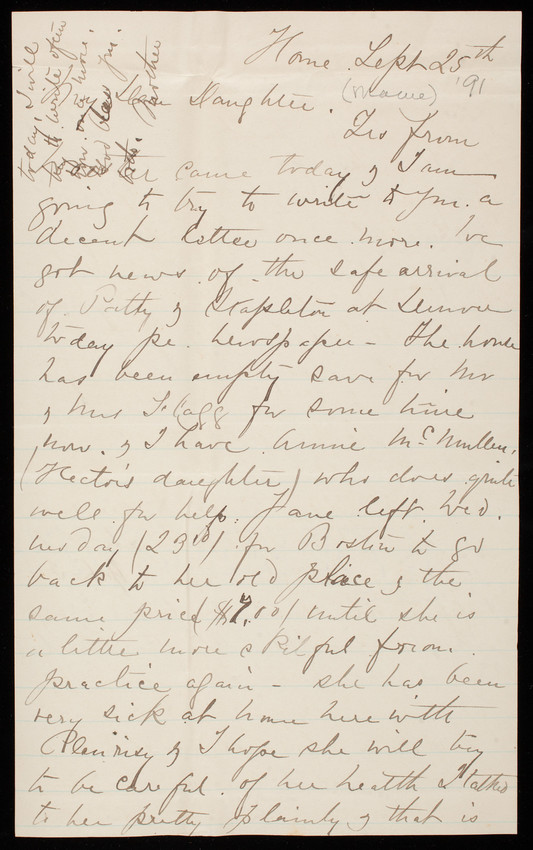 Home Sept 25th
'91
My Dear Daughter. (Mame)
Yrs from
came today & I am
going to try to write to you a
decent letter once more. I've
got news of the safe arrival
of Patty & Stapleton at Denver
today pr. newspaper - The house
has been empty save for Mr
& Mrs Flagg for some time
now. & I have Annie McMullen,
(Hector's daughter) who does quite
well for help. Jane left Wed.
nesday (23rd) for Boston to go
back to her old place & the
same price ($7.00) until she is
a little more skilful from
practice again - she has been
very sick at home here with
Pleurisy & I hope she will try
to be careful of her health I talked
to her pretty plainly & that is
today, I will
try to write often
now.
God
Mother